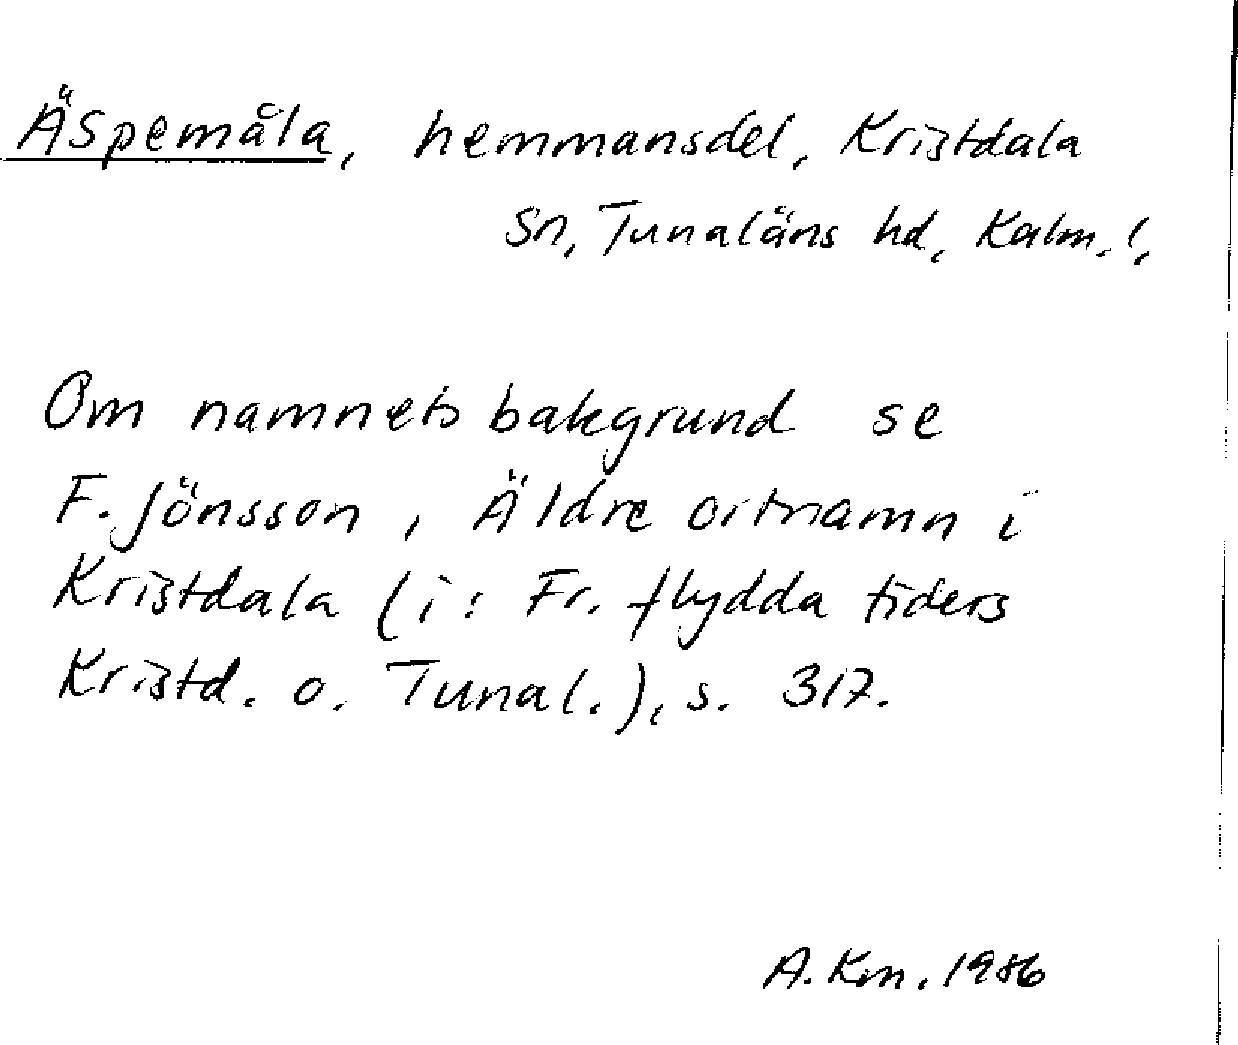 Äspemåla, hemmansdel, Kristdala
sn, Tunaläns hd, Kalm. l.
Om namnets bakgrund se
F. Jönsson, Äldre ortnamn i
Kristdala (i: Fr. flydda tiders
Kristd. o. Tunal.), s. 317.
A. Km. 1986